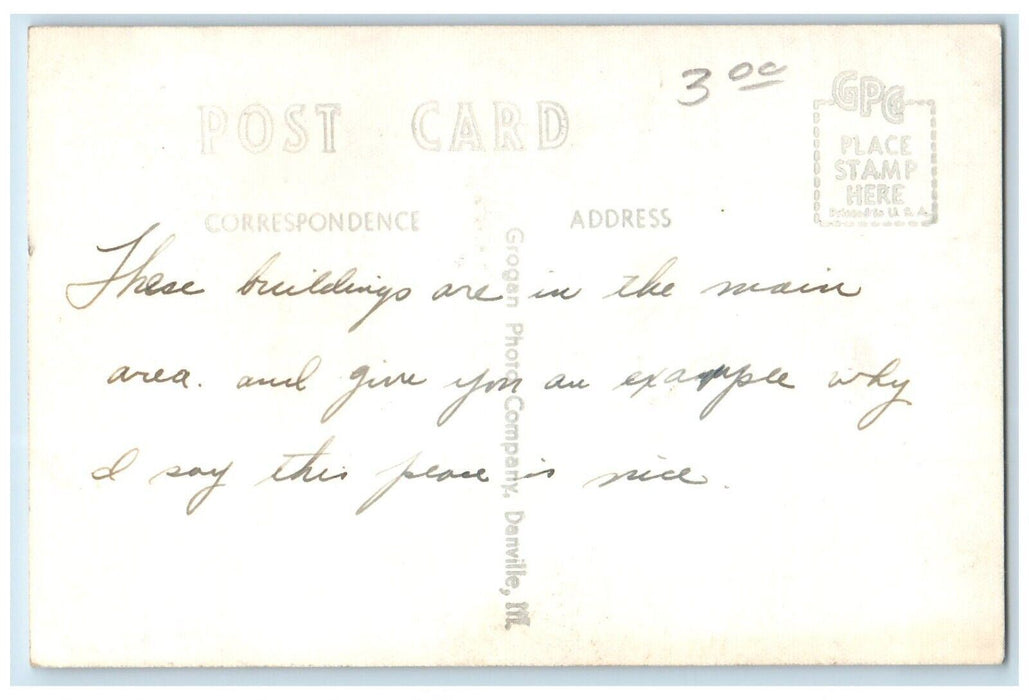 3 00
POST CARD
GPC
PLACE
STAMP
HERE
Printed in U. S. A.
CORRESPONDENCE
ADDRESS
These buildings are in the main
area. and give you an example why
I say this place is nice.
Grogan Photo Company, Danville, Ill.